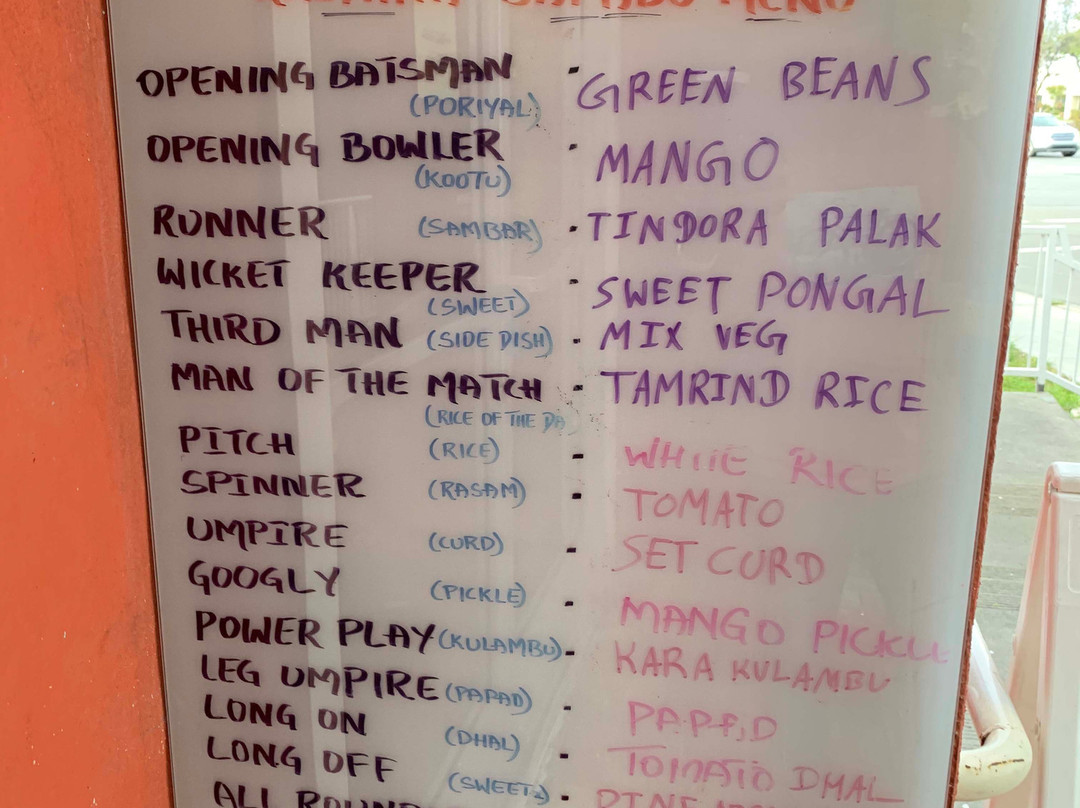 MENU
OPENING BATSMAN (PORIYAL) - GREEN BEANS
OPENING BOWLER (KOOTU) - MANGO
RUNNER (SAMBAR) - TINDORA PALAK
WICKET KEEPER (SWEET) - SWEET PONGAL
THIRD MAN (SIDE DISH) - MIX VEG
MAN OF THE MATCH (RICE OF THE DA - TAMRIND RICE
PITCH (RICE) - WHITE RICE
SPINNER (RASAM) - TOMATO
UMPIRE (CURD) - SET CURD
GOOGLY (PICKLE) - MANGO PICKLE
POWER PLAY (KULAMBU) - KARA KULAMBU
LEG UMPIRE (PAPAD) - PAPAD
LONG ON (DHAL) - TOMATO DHAL
LONG OFF (SWEET2) -
ALL